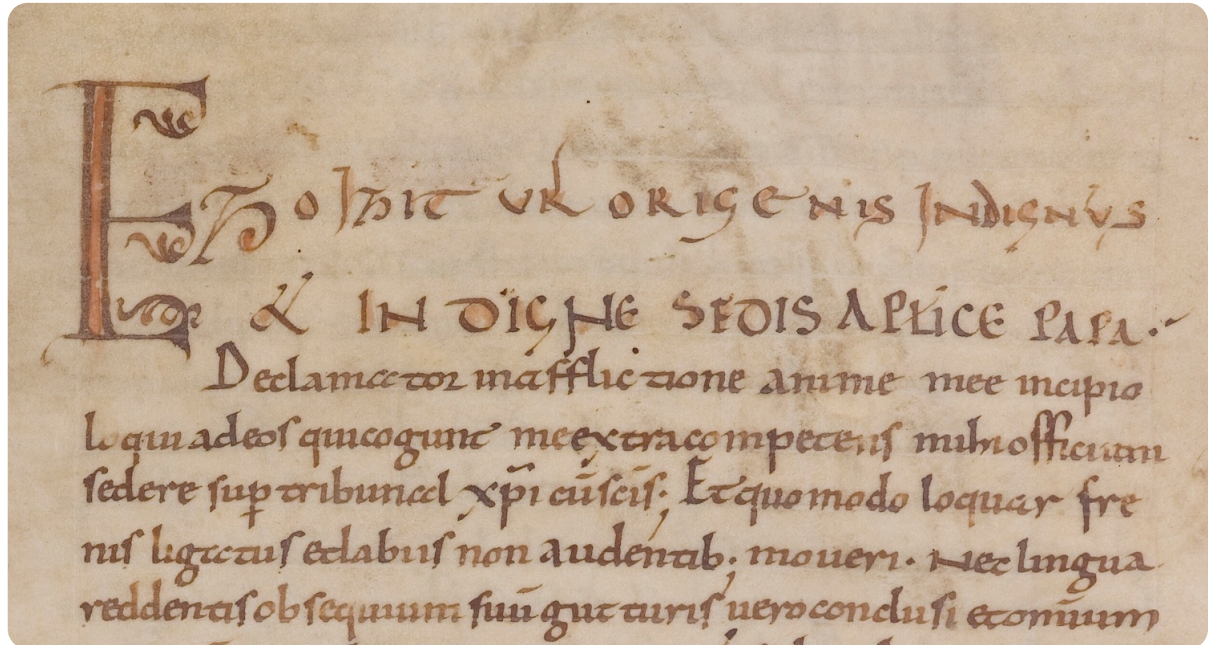 ORIGENIS INDIGNUS
& INDIGNE SEDIS APLICE PAPA.
Declamator inafflictione anime mee incipio
loqui adeos quicogunt meextracompetens mihi officium
sedere sup̄ tribunal xp̄i cū scīs; Et quomodo loquar fre
nis ligatus etlabiis non audentib; moueri. Nec lingua
reddentis obsequium suū gutturis uero conclusi etom̄ium